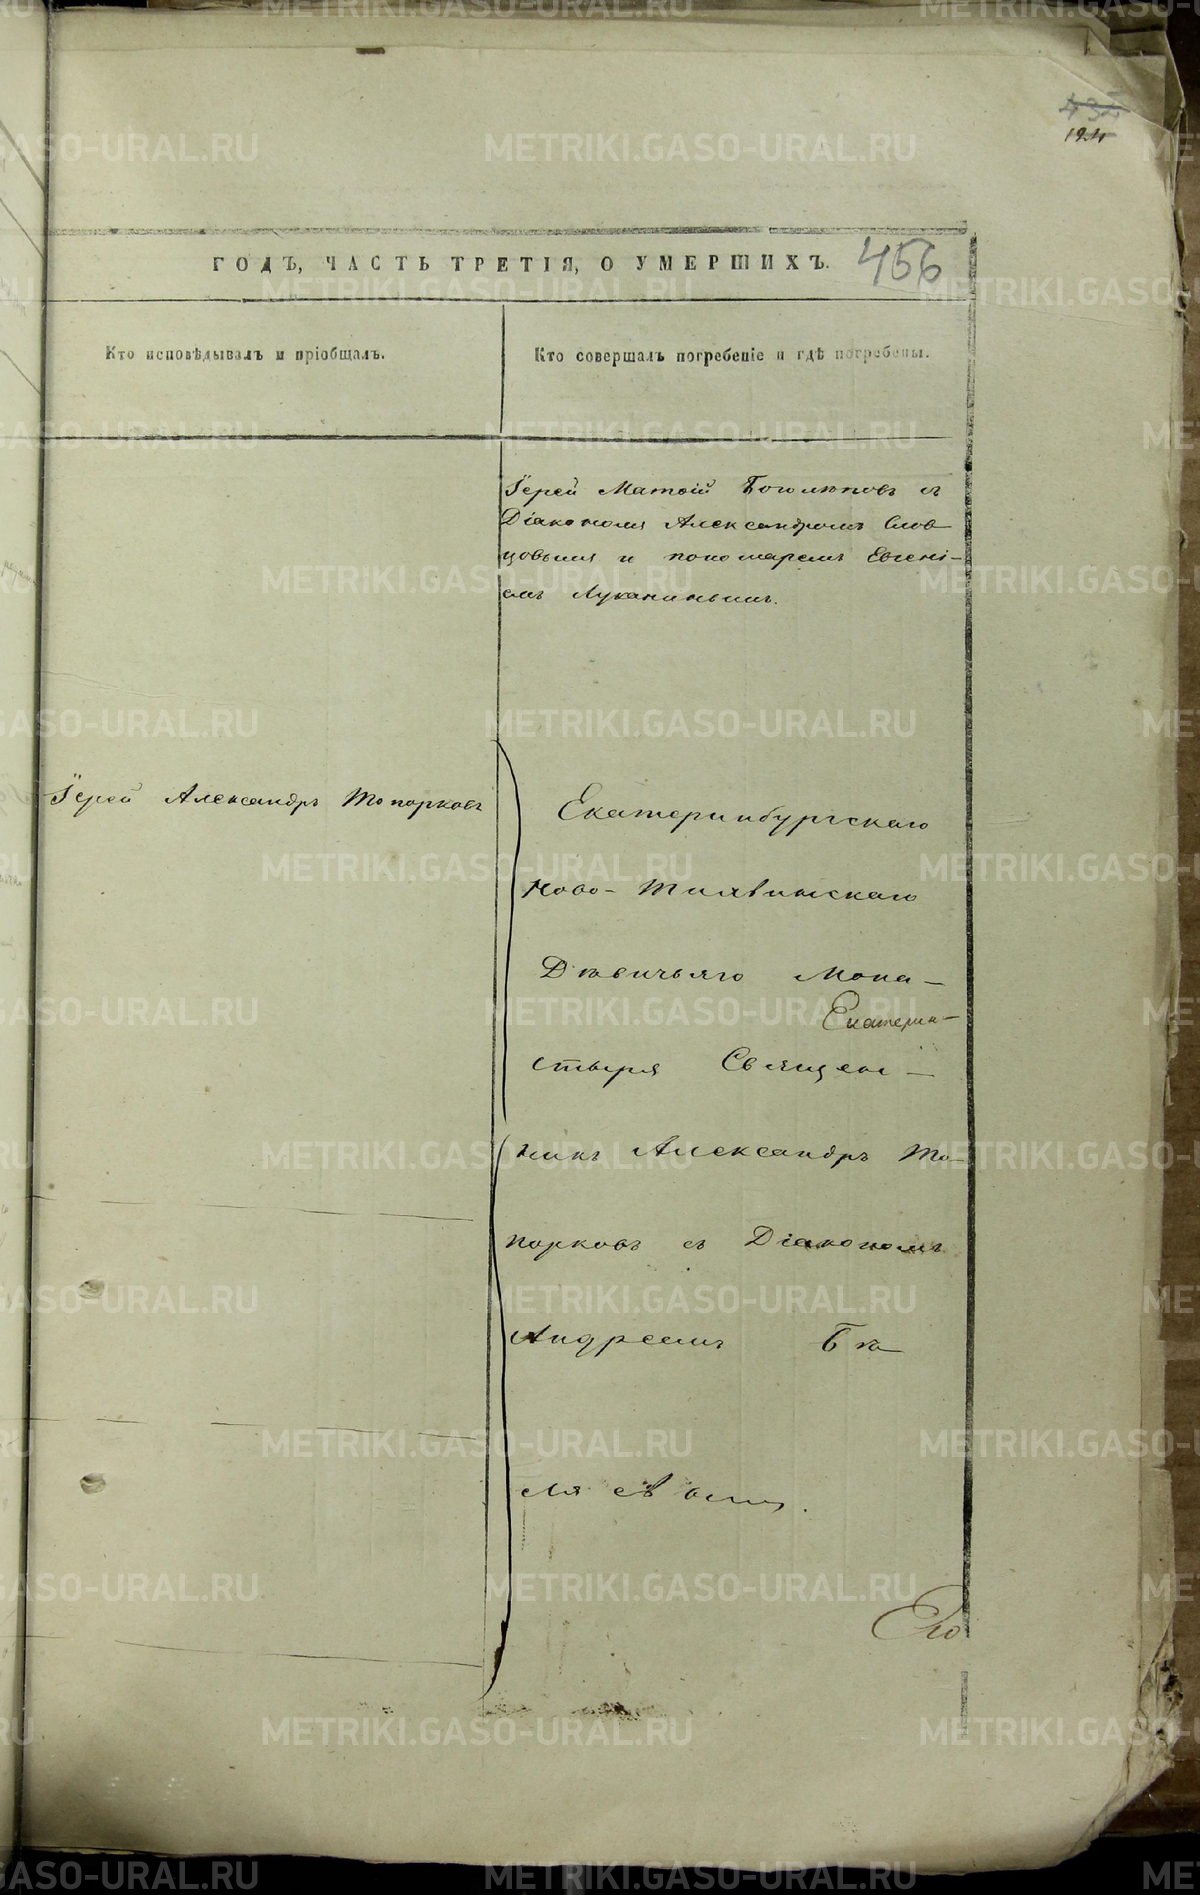 435
194
ГОДЪ, ЧАСТЬ ТРЕТІЯ, О УМЕРШИХЪ.
456
Кто исповѣдывалъ и пріобщалъ.
Кто совершалъ погребеніе и гдѣ погребены.
Іерей Матѳій Боголюповъ съ
Діакономъ Александромъ Слов
цовымъ и пономаремъ Евгені-
емъ Луканинымъ.
Іерей Александръ Топорковъ
Екатеринбургскаго
Ново-Тихвинскаго
Дѣвичьяго Мона-
Екатерин-
стыря Священ-
никъ Александръ То-
порковъ съ Діакономъ
Андреемъ Бѣ
Его
METRIKI.GASO-URAL.RU